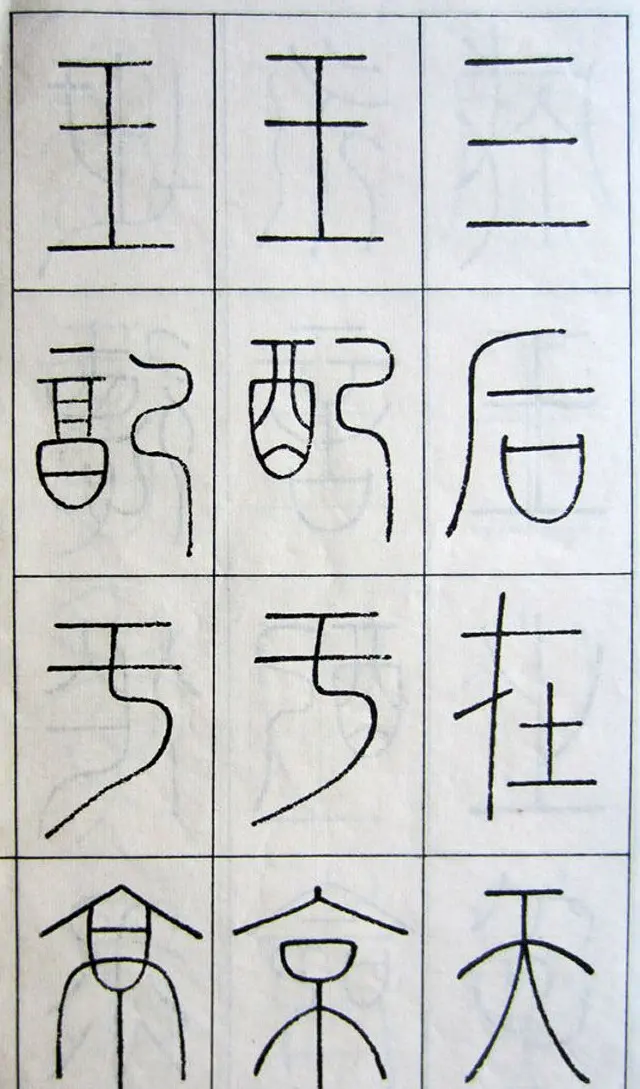 三后在天
王配于京
王配于京